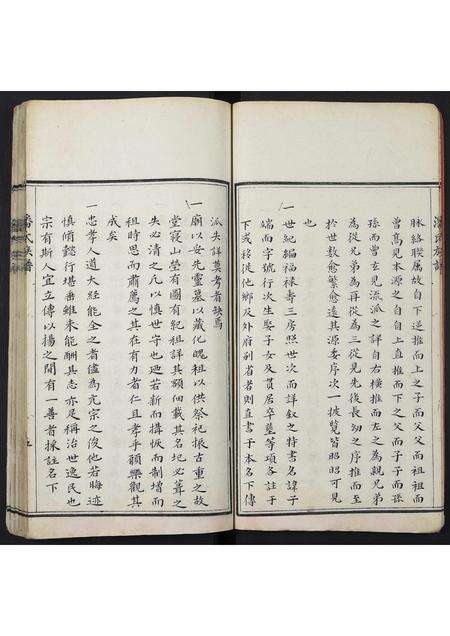 脉絡聯屬故自下逆推而上之子而父父而祖祖而
曾高見本源之自自上直推而下之父而子子而孫
孫而曾玄見流派之詳自右橫推而左之為親兄弟
為從兄弟為再從為三從見先後長幼之序推而至
於世數愈繁愈遠其源委序次一披覽皆昭昭可見
也
一世紀編福祿壽三房照世次而詳叙之特書名諱子
端而字號行次生娶子女及貫居卒墓等項各註于
下或移徙他鄉及外府別省者則直書于本名下傳
派失詳莫考者缺焉
一廟以安先靈墓以藏化魄租以供祭祀振古重之故
堂寢山塋有圖有紀租詳其額佃載其名圮必葺之
失必清之凡以慎世守也廼若新而搆恢而制增而
租時思而肅薦之其在有力者仁且孝乎顧樂觀其
成矣
一忠孝人道大經能全之者儘為亢宗之俊他若晦迹
慎脩懿行堪垂雖未能酬其志亦足稱治世逸民也
宗有斯人宜立傳以揚之間有一善者採註名下
氏族譜